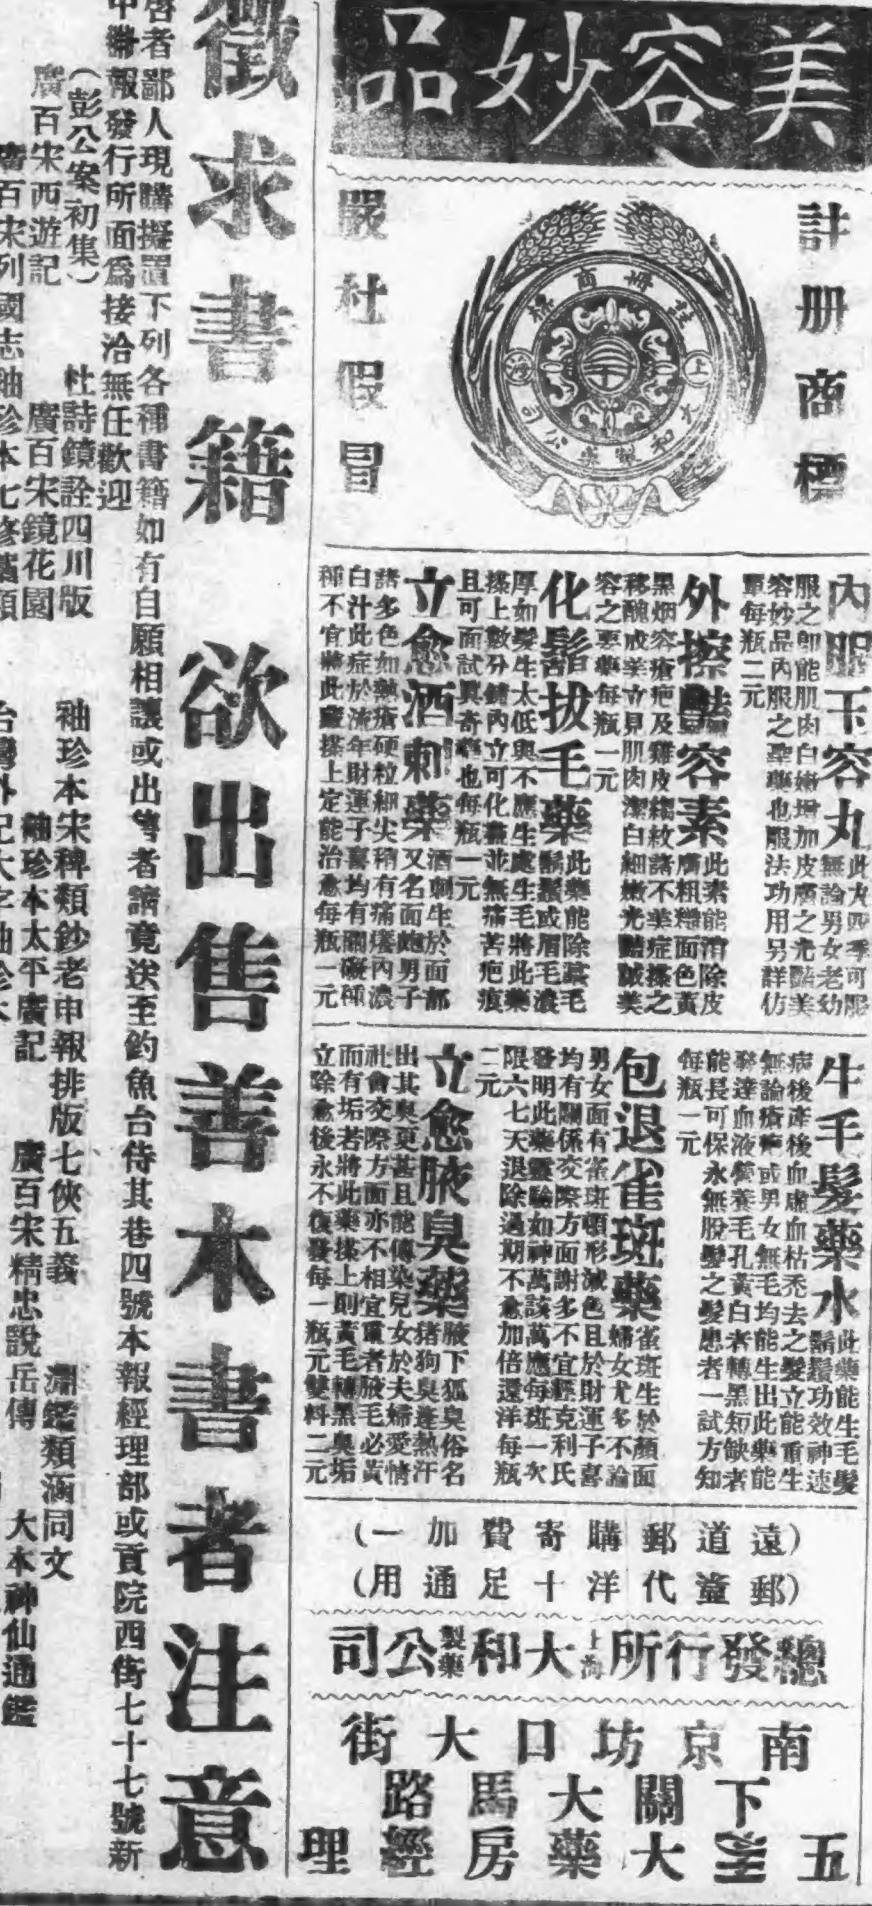 美容妙品
註册商標
嚴杜假冒
註册商標
上海
大和製藥公司
內服玉容丸
此丸四季可服無論男女老幼
服之卽能肌肉白嫩增加皮膚之光豔美
容妙品內服之聖藥也服法功用另詳仿
單每瓶二元
外擦豔容素
此素能消除皮膚粗糙面色黃
黑烟容瘡疤及雞皮縐紋諸不業症搽之
移醜成美立見肌肉潔白細嫩光豔誠美
容之要藥每瓶一元
化鬍拔毛藥
此藥能除毛鬍鬚或眉毛濃
厚如髮生太低與不應生處生毛將此藥
搽上數分鐘內立可化盡並無痛苦疤痕
且可面試眞奇藥也每瓶一元
立愈酒刺藥
酒刺生於面部又名面皰男子
諸多色如熱瘡硬粒細尖稍有痛癢內濃
白汁此症於流年財運子喜均有關礙種
種不宜將此藥搽上定能治愈每瓶一元
生毛髮藥水
此藥能生毛髮鬍鬚功效神速
病後產後血虛血枯禿去之髮立能重生
無論瘡疤或男女無毛均能生出此藥能
發達血液營養毛孔黃白者轉黑短缺者
能長可保永無脫髮之髮患者一試方知
每瓶一元
包退雀斑藥
雀斑生於顏面婦女尤多不論
男女面有雀斑頓形減色且於財運子喜
均有關係交際方面諸多不宜經克利氏
發明此藥靈驗如神萬該萬應每斑一次
限六七天退除過期不愈加倍還洋每瓶
二元
立愈腋臭藥
腋下狐臭俗名猪狗臭逢熱汗
出其臭更甚且能傳染兒女於夫婦愛情
社會交際方面亦不相宜重者腋毛必黃
而有垢若將此藥搽上則黃毛轉黑臭垢
立除愈後永不復發每一瓶元雙料二元
(遠道郵購寄費加一)
(郵票代洋十足通用)
總發行所上海大和製藥公司
南京坊口大街
下關大馬路
五洲大藥房經理
徵求書籍 欲出售善本書者注意
啓者鄙人現購擬置下列各種書籍如有自願相讓或出售者請竟送至釣魚台侍其巷四號本報經理部或貢院西街七十七號新
中華報發行所面爲接洽無任歡迎
(彭公案初集) 杜詩鏡詮四川版 袖珍本宋稗類鈔老申報排版七俠五義 淵鑑類函同文
廣百宋西遊記 廣百宋鏡花園 袖珍本太平廣記 廣百宋精忠說岳傳 大本神仙通鑑
廣百宋列國志袖珍本七修類 台灣外記大字袖珍本